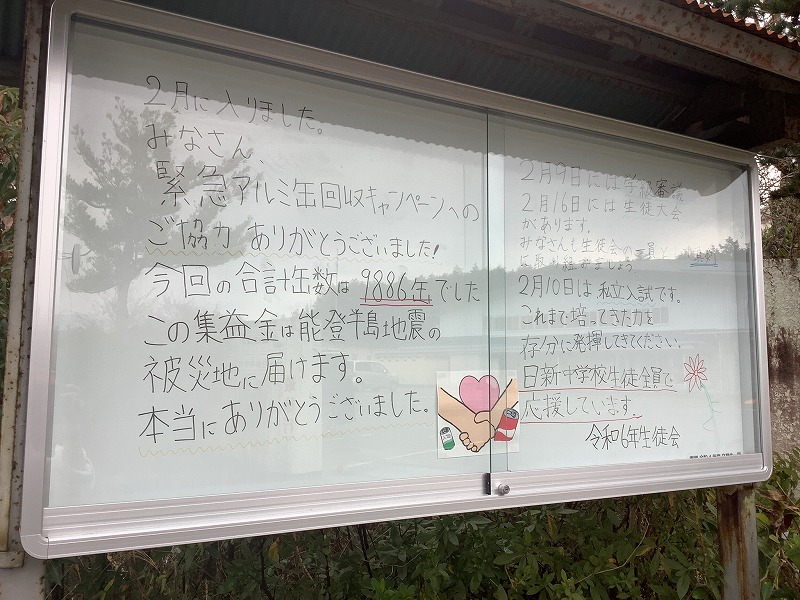 2月に入りました。
みなさん、
緊急アルミ缶回収キャンペーンへの
ご協力 ありがとうございました!
今回の合計缶数は 9886缶でした
この集益金は能登半島地震の
被災地に届けます。
本当にありがとうございました。
2月9日には学級審議
2月16日には生徒大会
があります。
みなさんも生徒会の一員として
に取り組みましょう
2月10日は私立入試です。
これまで培ってきた力を
存分に発揮してきてください。
日新中学校生徒全員で
応援しています。
令和6年生徒会